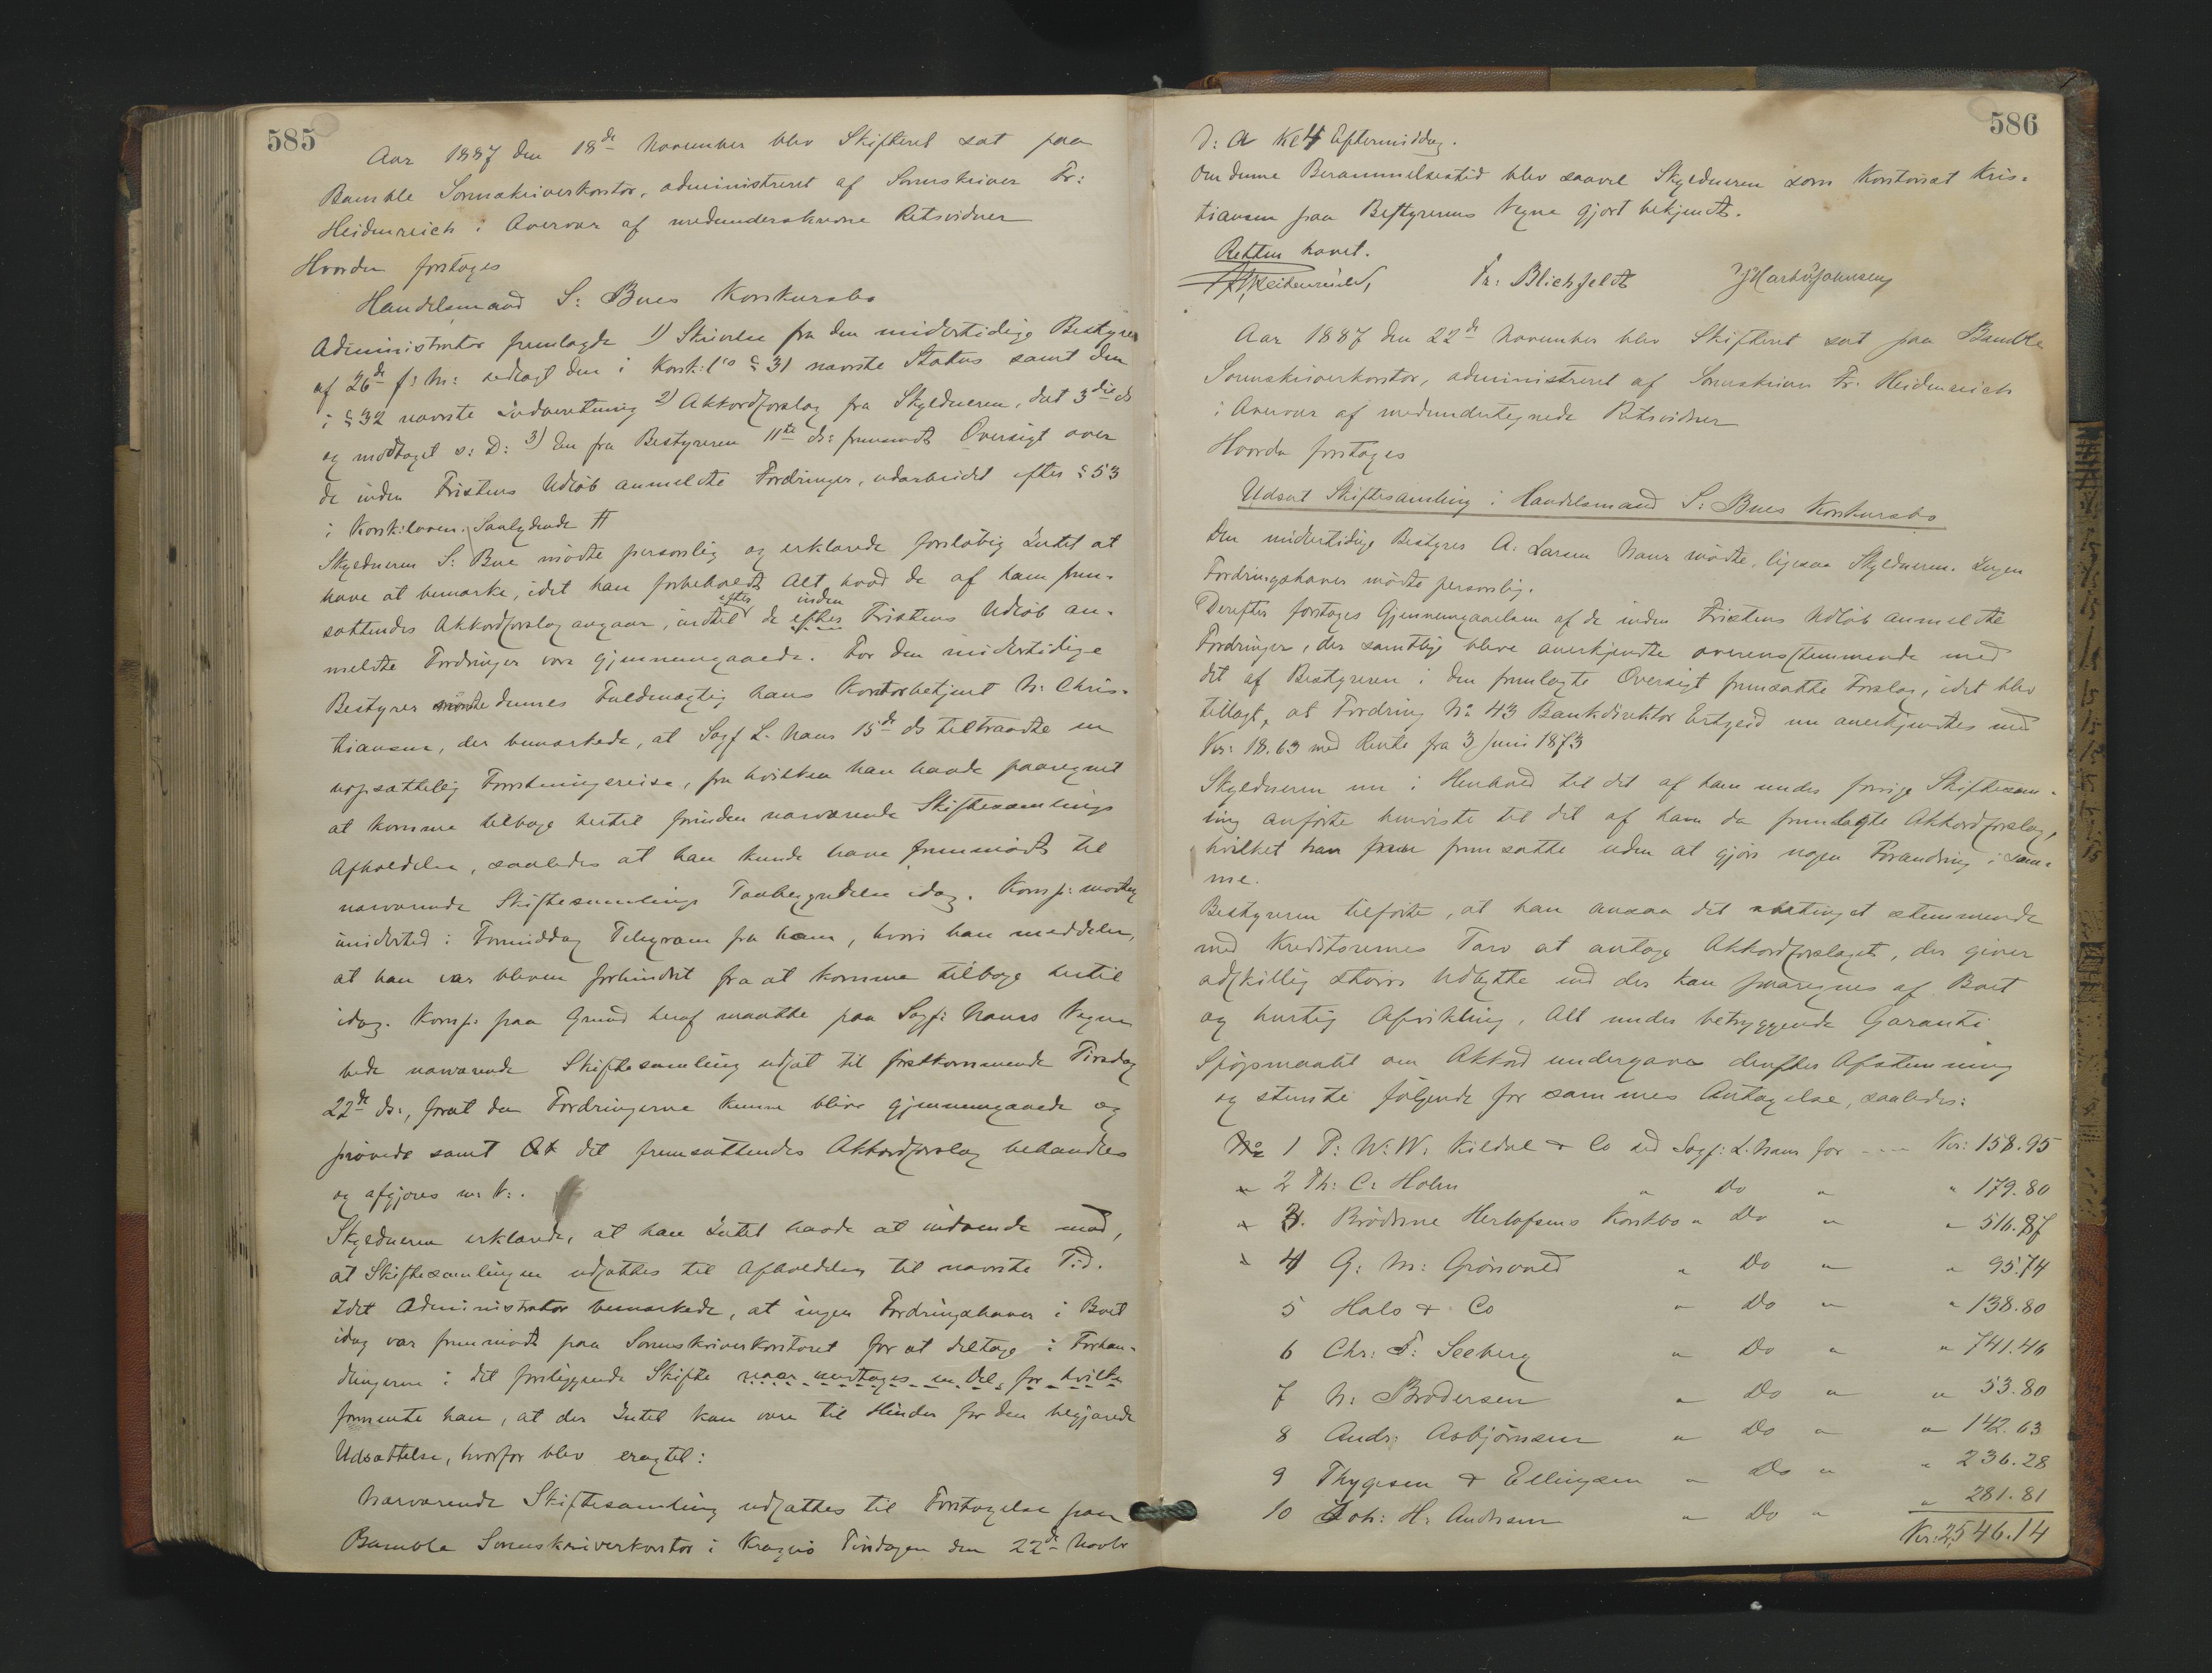 585
Aar 1887 den 18de November blev Skifteret sat paa
Bamble Sorenskriverkontor, administreret af Sorenskriver Fr:
Heidenreich i Overvær af medunderskrevne Retsvidner
Hvorda foretoges
Handelsmand S: Bues Konkursbo
Administrator fremlagde 1) Skrivelse fra den midlertidige Bestyrer
af 26de f: M: vedlagt den i Konk:l's § 31 nævnte Status samt den
i § 32 nævnte Indberetning 2) Akkordforslag fra Skyldneren, dat 3die ds
og modtaget s: D: 3) Den fra Bestyreren 11te ds: fremsendte Oversigt over
de inden Fristens Udløb anmeldte Fordringer, udarbeidet efter § 53
i Konk:loven. Saalydende #
Skyldneren S: Bue mødte personlig og erklærede foreløbig Intet at
have at bemærke, idet han forbeholdt Alt, hvad de af ham frem-
sættendes Akkordforslag angaar, indtil efter de efter inden Fristens Udløb an-
meldte Fordringer vare gjennemgaaede. For den midlertidige
Bestyrer mødte dennes Fuldmægtig hans Kontorbetjent N: Chris-
tiansen, der bemærkede, at Sagf L. Naus 15de ds tiltraadte en
uopsættelig Forretningsreise, fra hvilken han havde paaregnet
at komme tilbage hertil forinden nærværende Skiftesamlings
Afholdelse, saaledes at han kunde have fremmødt til
nærværende Skiftesamlings Paabegyndelse idag. Komp: modtog
imidlertid i Formiddag Telegram fra ham, hvori han meddeler,
at han var bleven forhindret fra at komme tilbage hertil
idag. Komp: paa Grund heraf maatte paa Sagf: Naus's Vegne
bede nærværende Skiftesamling udsat til førstkommende Tirsdag
22de ds:, forat da Fordringerne kunne blive gjennemgaaede og
prøvede samt det fremsættendes Akkordforslag behandles
og afgjøres m: V:.
Skyldneren erklærede, at han Intet havde at indvende mod,
at Skiftesamlingen udsættes til Afholdelse til nævnte Tid.
Idet Administrator bemærkede, at ingen Fordringshaver i Boet
idag var fremmødt paa Sorenskriverkontoret for at deltage i Forhan-
dlingerne i det foreliggende Skifte naar undtages en Del, for hvilke
formente han, at der Intet kan være til Hinder for den begjærede
Udsættelse, hvorfor blev eragtet:
Nærværende Skiftesamling udsættes til Foretagelse paa
Bamble Sorenskriverkontor i Kragerø Tirsdagen den 22de Novbr
586
d: A Kl 4 Eftermiddag.
Om denne Berammelsestid blev saavel Skyldneren som Kontorist Kris-
tiansen paa Bestyrerens Vegne gjort bekjendt.
Retten hævet.
Fr Heidenreich, Fr: Blichfeldt
Aar 1887 den 22de November blev Skifteret sat paa Bamble
Sorenskriverkontor, administreret af Sorenskriver Fr. Heidenreich
i Overvær af medundertegnede Retsvidner
Hvorda foretoges
Udsat Skiftesamling i Handelsmand S: Bues Konkursbo
Den midlertidige Bestyrer A. Larsen Naus mødte, ligesaa Skyldneren. Ingen
Fordringshaver mødte personlig.
Derefter foretoges Gjennemgaaelsen af de inden Fristens Udløb anmeldte
Fordringer, der samtlige bleve anerkjendte overensstemmende med
det af Bestyreren i den fremlagte Oversigt fremsatte Forslag, idet blev
tillagt, at Fordring No 43 Bankdirektør nu anerkjendtes med
Kr: 18.63 med Rente fra 3 Juni 1873
Skyldneren nu i Henhold til det af ham under forrige Skiftesam-
ling anførte henviste til det af ham da fremlagte Akkordforslag,
hvilket han fremsatte uden at gjøre nogen Forandring i sam-
me.
Bestyreren tilførte, at han ansaa det ubetinget stemmende
med Kreditorernes Tarv at antage Akkordforslaget, der giver
adskillig større Udbytte end der kan paaregnes af Boet
og hurtig Afvikling, Alt under betryggende Garanti
Spørgsmaalet om Akkord undergaves derefter Afstemning
og stemte følgende for sammes Antagelse, saaledes:
No 1 P: W: W: Kildal & Co ved Sagf: L. Naus for ---- Kr: 158.95
" 2 Th: C: Holm " Do " " 179.80
" 3. Brødrene Herlofsens Konkbo " Do " " 516.87
" 4 G: M: Grønvold " Do " " 95.74
5 Hals & Co " Do " " 138.80
6 Chr: F: Seeberg " Do " " 741.46
7 N: Brodersen " Do " " 53.80
8 Andr: Asbjørnsen " Do " " 142.63
9 Thygesen & Ellingsen " Do " " 236.28
10 Joh: H: Andresen " Do " " 281.81
Kr: 2,546.14